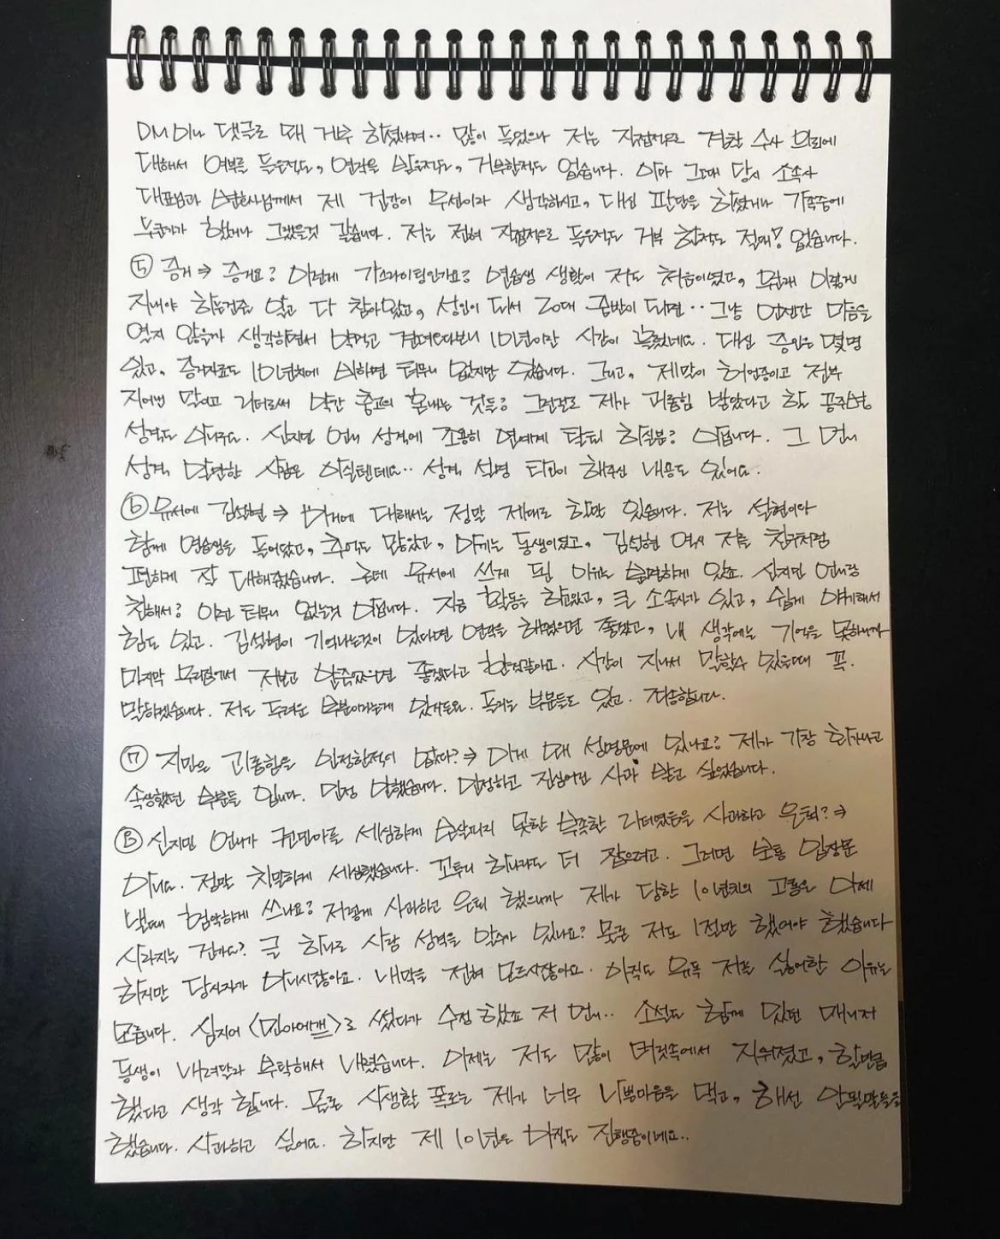 DM이나 댓글로 왜 거부 하셨냐며.. 많이 들었으나 저는 직접적으로 경찰 수사 의뢰에
대해서 여부를 들은적도, 연락을 받은적도, 거부한적도 없습니다. 아마 그때 당시 소속사
대표님과 님께서 제 건강이 우선이라 생각하시고, 대신 판단을 하셨거나 가족중에
누군가가 했거나 그랬을것 같습니다. 저는 전혀 직접적으로 들은적도 거부 한적도 절대! 없습니다.
⑤ 증거 ⇒ 증거요? 이런게 가스라이팅인가요? 연습생 생활이 저도 처음이였고, 원래 이렇게
지내야 하는건줄 알고 다 참아왔고, 성인이 되서 20대 중반이 되면.. 그냥 언젠간 마음을
열지 않을까 생각하면서 악먹고 견뎌오다보니 10년이란 시간이 흘렀네요. 대신 증인은 몇명
있고, 증거자료도 10년치에 비하면 터무니 없지만 있습니다. 그리고, 제말이 허언증이고 전부
지어낸 말이고 리더로써 약간 충고의 혼내는 것들? 그런걸로 제가 괴롭힘 받았다고 할
성격도 아니구요. 신지민 언니 성격에 조용히 연예계 탈퇴 하실분? 아닙니다. 그 언니
성격, 만만한 사람은 아실텐데요.. 성격 설명 타인이 해주신 내용도 있어요.
⑥ 유서에 김설현 ⇒ 여기에 대해서는 정말 제대로 할말 있습니다. 저는 설현이와
함께 연습생을 들어왔고, 추억도 많았고, 아끼는 동생이였고, 김설현 역시 저를 친구처럼
편하게 잘 대해주었습니다. 근데 유서에 쓰게 된 이유는 분명하게 있죠. 신지민 언니랑
친해서? 이런 터무니 없는것 아닙니다. 지금 활동을 하고있고, 큰 소속사가 있고, 쉽게 얘기해서
힘도 있고. 김설현이 기억나는것이 있다면 연락을 해왔으면 좋겠고, 내 생각에는 기억을 못하니까
마지막 모른척에서 저보고 알아줬으면 좋겠다고 한것같아요. 시간이 지나서 말할수 있을때 꼭.
말하겠습니다. 저도 두려운 부분이라는게 있거든요. 녹취도 부분들도 있고. 죄송합니다.
⑦ 지민은 괴롭힘을 인정한적이 없다? ⇒ 이게 왜 설명문에 있나요? 제가 가장 화가나고
속상했던 부분들 입니다. 인정 안했습니다. 인정하고 진심어린 사과 받고 싶었습니다.
⑧ 신지민 언니가 권민아를 세심하게 보살피지 못한 부족한 리더였음을 사과하고 은퇴? ⇒
아니요. 정말 치밀하게 세심했습니다. 꼬투리 하나라도 더 잡으려고. 그러면 보통 입장문
낼때 험악하게 쓰나요? 저렇게 사과하고 은퇴 했으니까 제가 당한 10년치의 고통은 이제
사라지는 건가요? 글 하나로 사람 성격을 알수가 있나요? 물론 저도 1절만 했어야 했습니다
하지만 당사자가 아니시잖아요. 내막을 전혀 모르시잖아요. 아직도 유독 저를 싫어한 이유는
모릅니다. 심지어 <민아에게>로 썼다가 수정 했죠 저 언니.. 소설도 함께 있던 매니저
동생이 내려달라 부탁해서 내렸습니다. 이제는 저도 많이 머릿속에서 지워졌고, 할만큼
했다고 생각 합니다. 물론 사생활 폭로는 제가 너무 나쁜마음을 먹고, 해선 안될말들을
했습니다. 사과하고 싶어요. 하지만 제 10년은 아직도 진행중이네요..